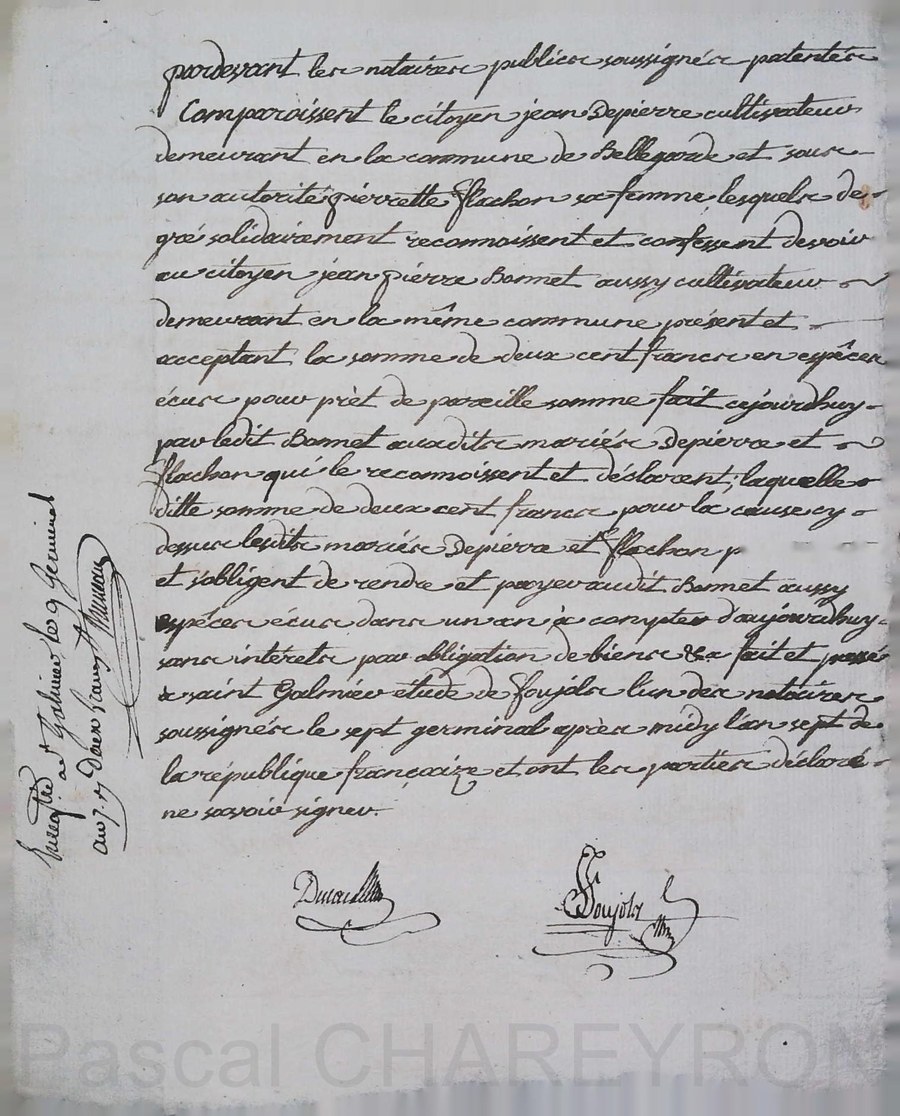 pardevant les notaires publics soussignés patentés
Comparoissent le citoyen jean Depierre cultivateur
demeurant en la commune de Bellegarde et sous
son autorité pierrette flachon sa femme lesquels de
gré solidairement reconnoissent et confessent devoir
au citoyen jean pierre Bonnet aussy cultivateur
demeurant en la même commune présent et
acceptant la somme de deux cent francs en espèces
écus pour prèt de pareille somme fait cejourdhuy
par ledit Bonnet auxdits mariés Depierre et
flachon qui le reconnoissent et déclarent; laquelle
ditte somme de deux cent francs pour la cause cy
dessus lesdits mariés Depierre et flachon p
et s'obligent de rendre et payer audit Bonnet aussy
espèces écus dans un an à compter d'aujourdhuy
sans intérets par obligation de biens &a fait et passé
a saint Galmier étude de foujols l'un des notaires
soussignés le sept germinal après midy l'an sept de
la république françoize et ont les parties déclaré
ne savoir signer.
Foujols
Enregistré a St Galmier le 9 Germinal
an 7. Deux francs
Pascal CHAREYRON